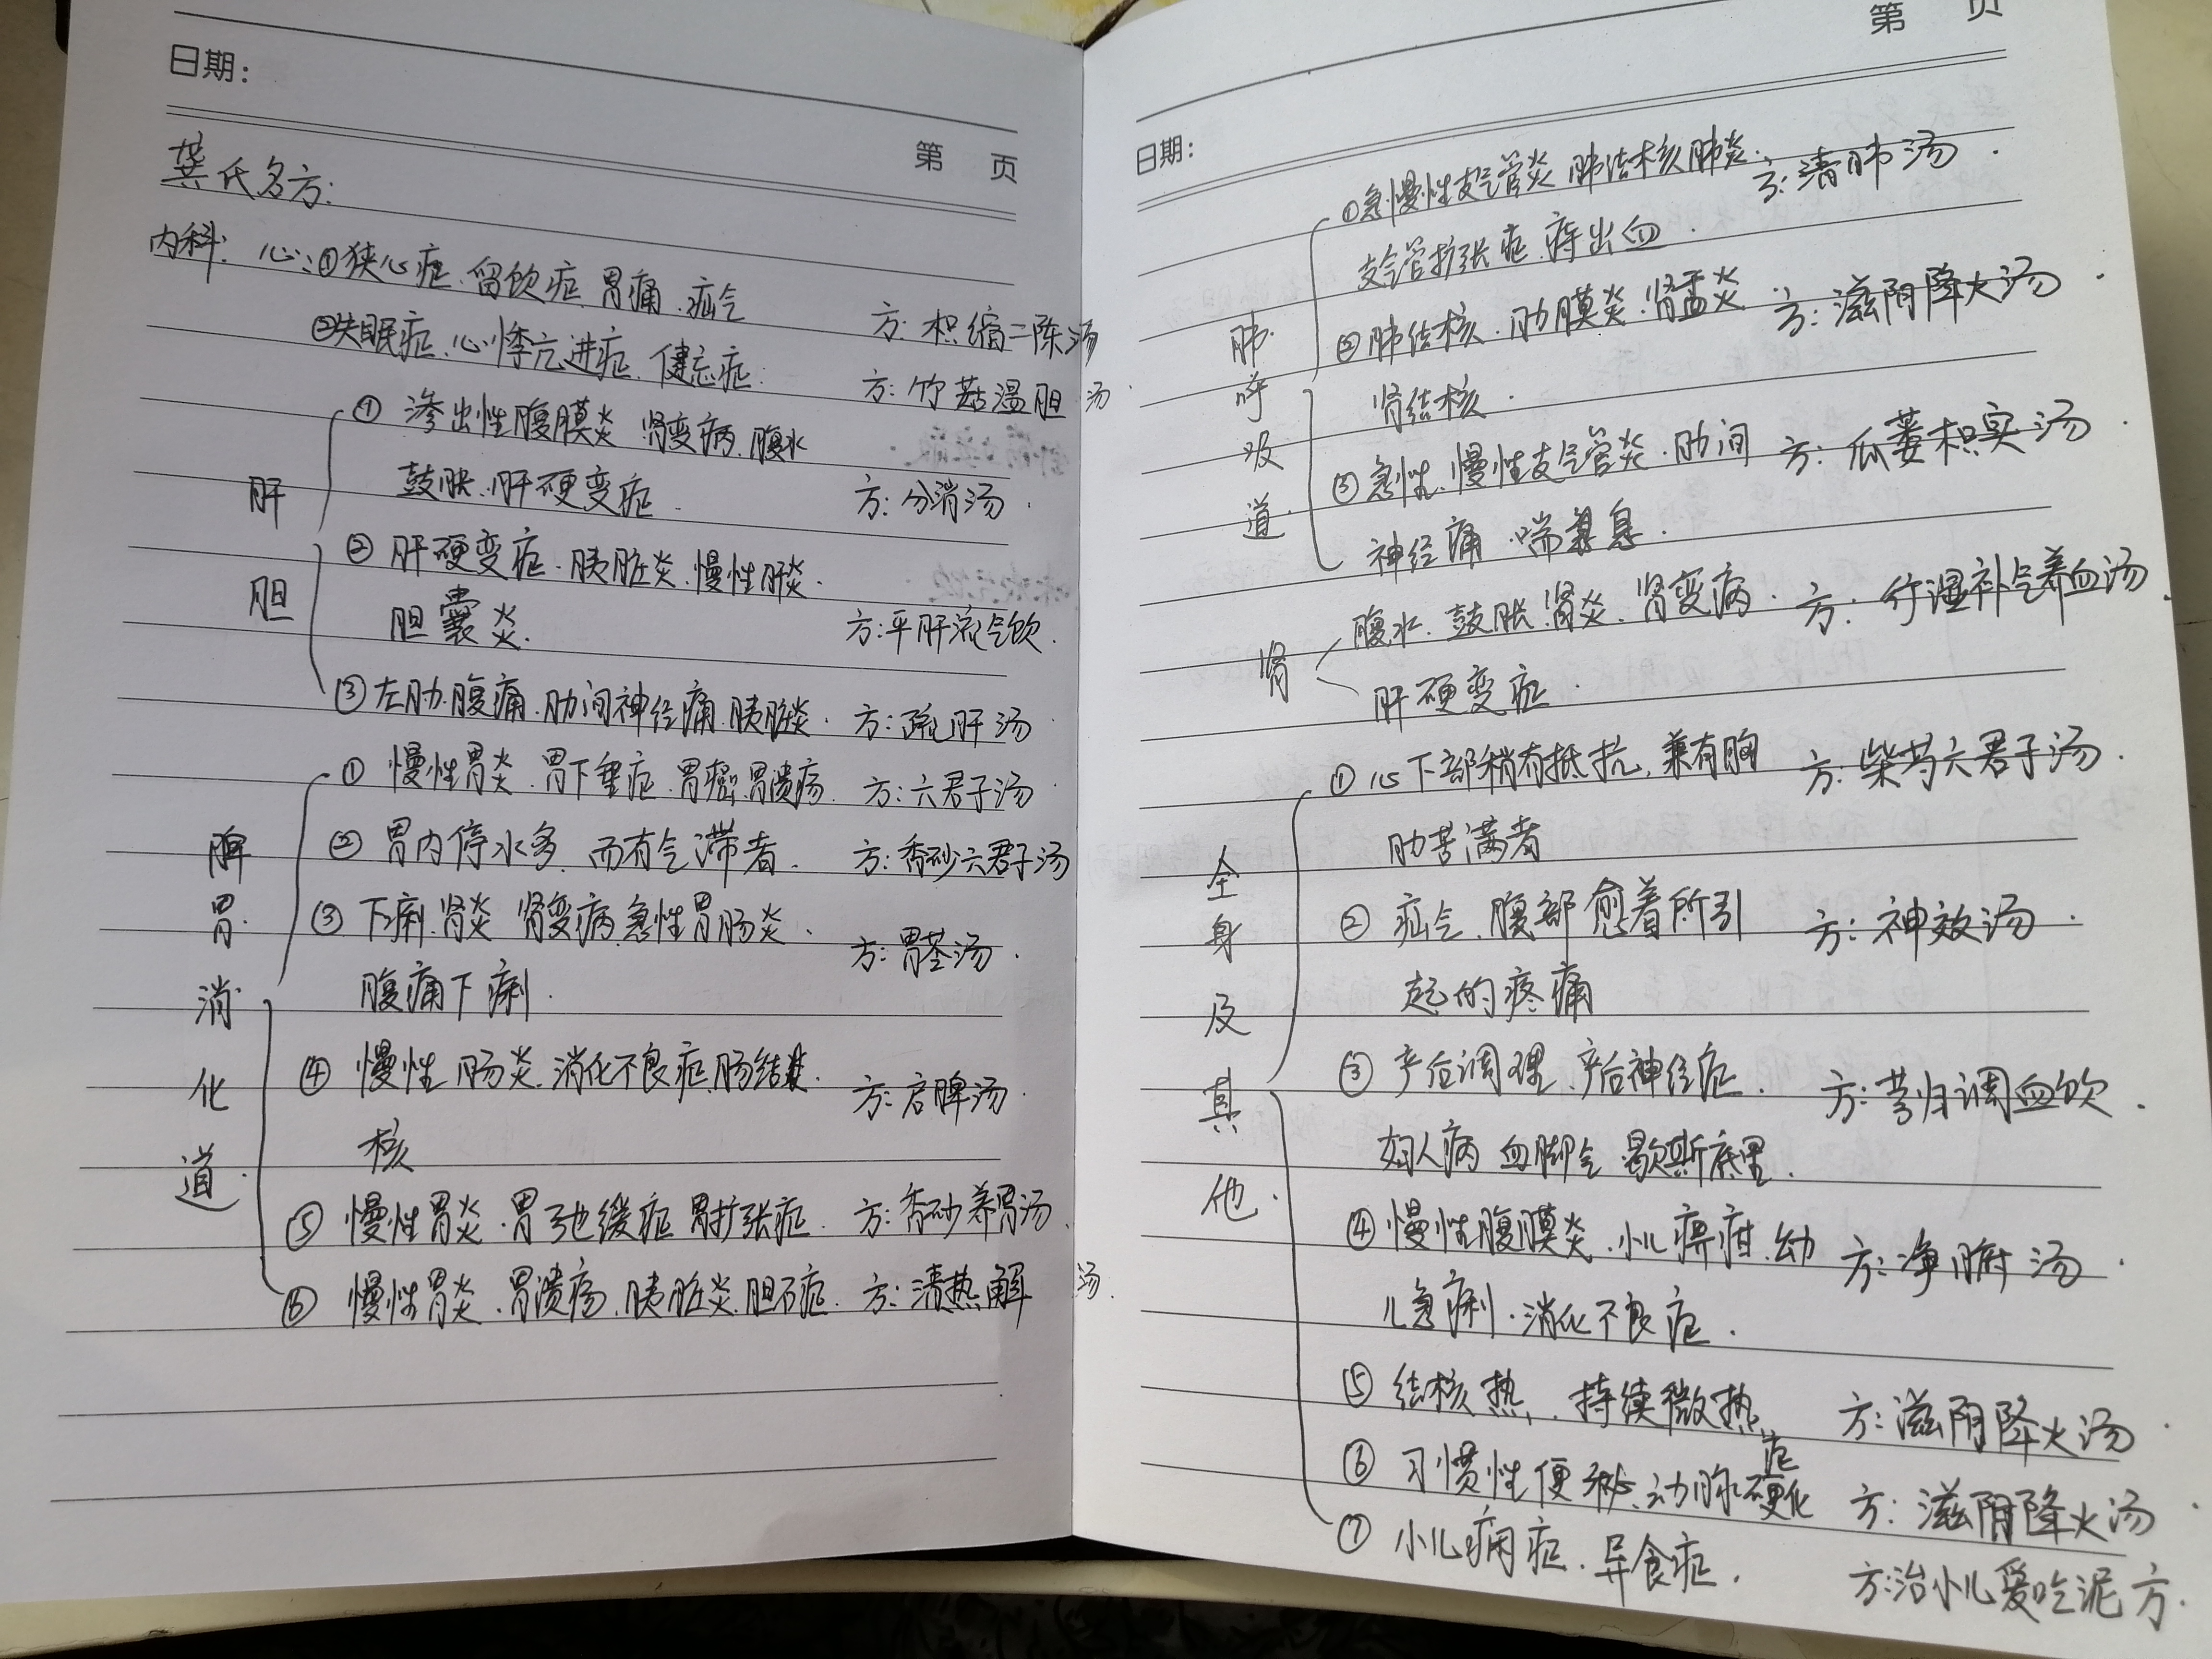 日期：
第 页
龚氏名方：
内科：心：①狭心症、留饮症、胃痛、疝气
方：枳缩二陈汤
②失眠症、心悸亢进症、健忘症
方：竹茹温胆汤
肝胆
① 渗出性腹膜炎、肾变病、腹水
鼓胀、肝硬变症
方：分消汤
② 肝硬变症、胰脏炎、慢性肝炎
胆囊炎
方：平肝流气饮
③左肋腹痛、肋间神经痛、胰脏炎 方：疏肝汤
脾胃消化道
① 慢性胃炎、胃下垂症、胃癌、胃溃疡 方：六君子汤
② 胃内停水多、而有气滞者 方：香砂六君子汤
③ 下痢、肾炎、肾变病、急性胃肠炎
腹痛下痢
方：胃苓汤
④ 慢性肠炎、消化不良症、肠结
核
方：启脾汤
⑤ 慢性胃炎、胃弛缓症、胃扩张症 方：香砂养胃汤
⑥ 慢性胃炎、胃溃疡、胰脏炎、胆石症 方：清热解 汤
第 页
日期：
肺呼吸道
①急慢性支气管炎、肺结核、肺炎 方：清肺汤
支气管扩张症、痔出血
②肺结核、肋膜炎、肾盂炎 方：滋阴降火汤
肾结核
③急性、慢性支气管炎、肋间 方：瓜蒌枳实汤
神经痛、喘息
肾
腹水、鼓胀、肾炎、肾变病 方：行湿补气养血汤
肝硬变症
全身及其他
① 心下部稍有抵抗，兼有胸 方：柴芍六君子汤
肋苦满者
② 疝气、腹部愈着所引 方：神效汤
起的疼痛
③ 产后调理、产后神经症 方：芎归调血饮
妇人病、血脚气、歇斯底里
④ 慢性腹膜炎、小儿痹疳、幼 方：净腑汤
儿急痢、消化不良症
⑤ 结核热、持续微热 方：滋阴降火汤
⑥ 习惯性便秘、动脉硬化症 方：滋阴降火汤
⑦ 小儿痫症、异食症 方：治小儿爱吃泥方